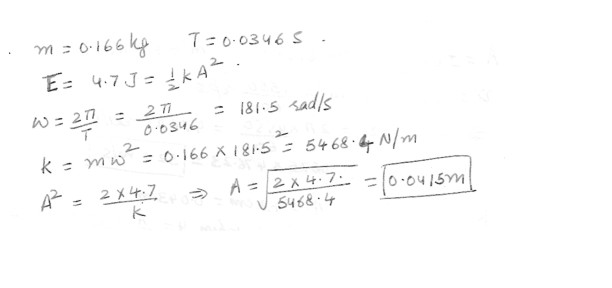 . m = 0.166 kg T = 0.0346 S .
E = 4.7 J = 1/2 k A² .
ω = 2π/T = 2π/0.0346 = 181.5 rad/s
k = mω² = 0.166 × 181.5² = 5468.4 N/m
A² = 2 × 4.7/k ⇒ A = √(2 × 4.7./5468.4) = 0.0415m